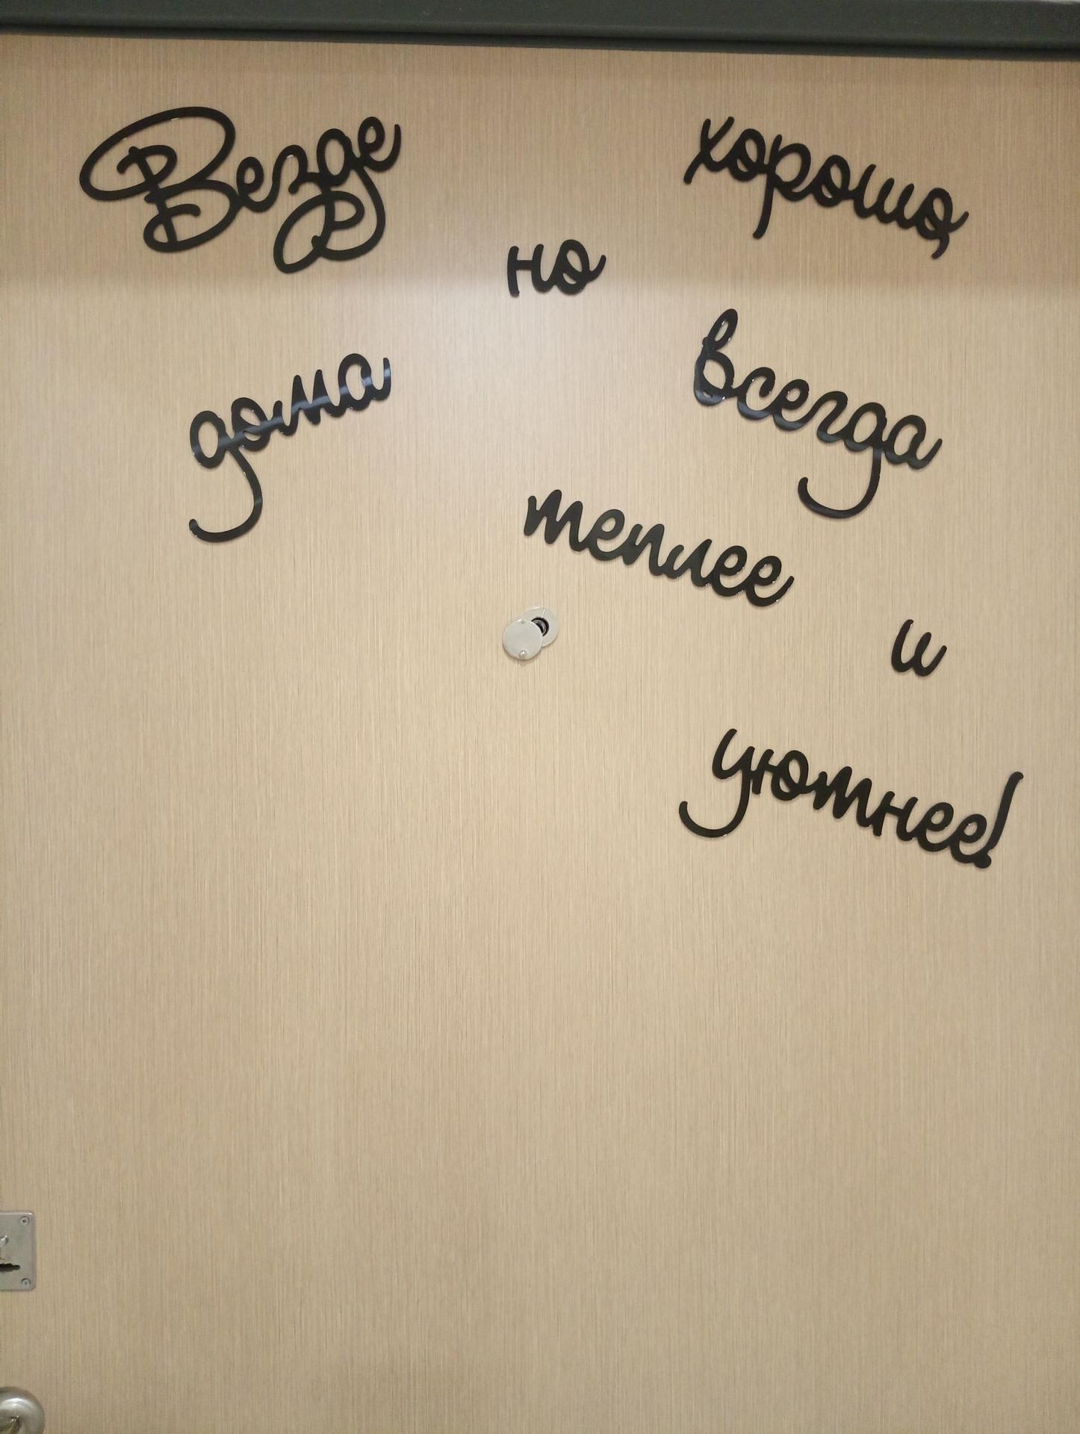 Везде хорошо,
но
дома всегда
теплее
и
уютнее!